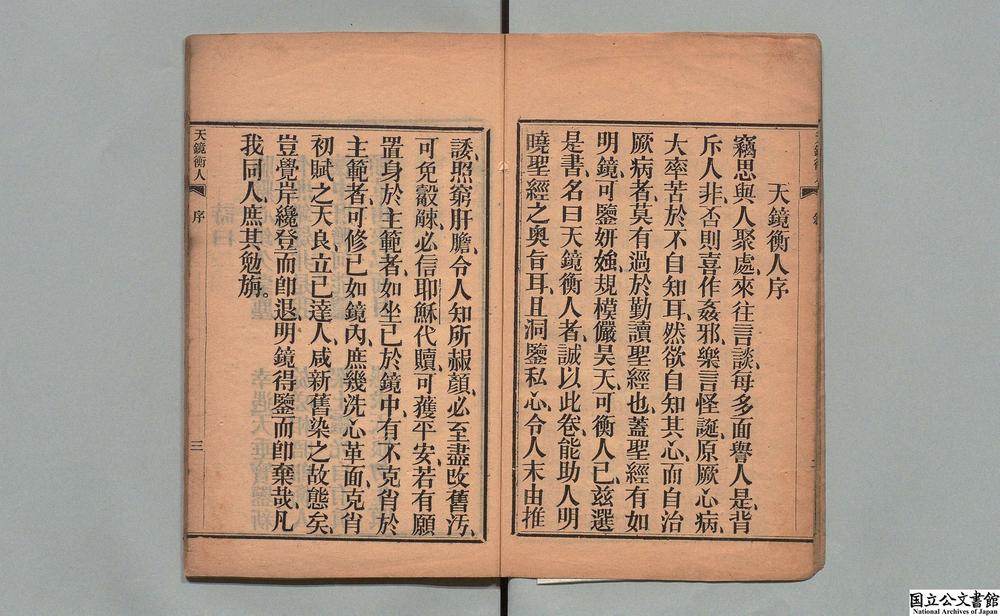 天鏡衡人序
竊思與人聚處、來往言談、每多面譽人是、背
斥人非、否則喜作姦邪、樂言怪誕、原厥心病、
大率苦於不自知耳、然欲自知其心、而自治
厥病者、莫有過於勤讀聖經也、蓋聖經有如
明鏡、可鑒妍媸、規模儼昊天、可衡人己、兹選
是書、名曰天鏡衡人者、誠以此卷能助人明
曉聖經之奧旨耳、且洞鑒私心、令人末由推
諉、照窮肝膽、令人知所赧顏、必至盡改舊汚、
可免觳觫、必信耶穌代贖、可獲平安、若有願
置身於主範者、如坐己於鏡中、有不克肖於
主範者、可修己如鏡內、庶幾洗心革面、克肖
初賦之天良、立己達人、咸新舊染之故態矣、
豈覺岸纔登而卽退、明鏡得鑒而卽棄哉、凡
我同人、庶其勉旃。
天鏡衡人
序
三
国立公文書館
National Archives of Japan